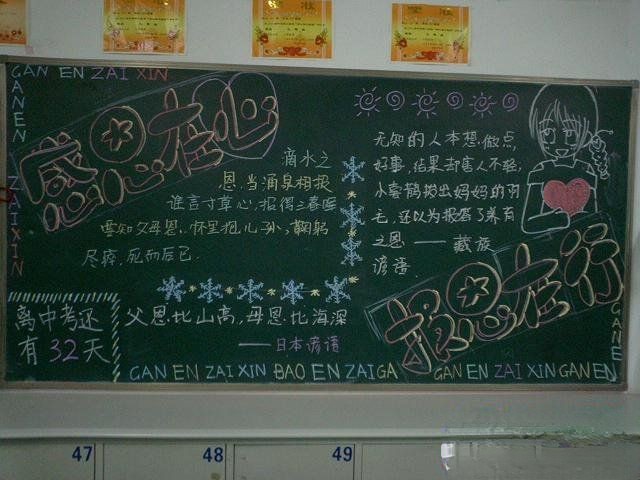 GAN EN ZAI XIN
GANEN ZAIXIN
感恩在心
滴水之
恩,当涌泉相报
谁言寸草心,报得三春晖
要知父母恩,怀里抱儿孙,鞠躬
尽瘁,死而后已.
无知的人本想做点
好事,结果却害人不轻;
小喜鹊拔出妈妈的羽
毛,还以为报答了养育
之恩 —— 藏族
谚语.
报恩在行
离中考还
有 32 天
父恩比山高,母恩比海深
——日本谚语
GAN EN ZAI XIN BAO EN ZAI GA
GAN EN ZAI XIN GAN EN
GANE
47
48
49